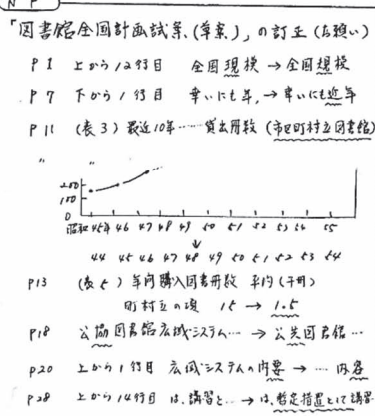 N P
「図書館全国計画試案(草案)」の訂正(お願い)
P1 上から12行目 全国現模 → 全国規模
P7 下から1行目 幸いにも年, → 幸いにも近年
P11 (表3) 最近10年……貸出冊数 (市区町村立図書館)
〃 〃
200
100
0
昭和45年 46 47 48 49 50 51 52 53 54 55
↓
44 45 46 47 48 49 50 51 52 53 54
P13 (表5) 年間購入図書冊数 平均(千冊)
町村立の項 15 → 1.5
P18 公協図書館広域システム… → 公共図書館…
P20 上から1行目 広域システムの内要 → … 内容
P28 上から14行目 は、講習と… → は、暫定措置として講習